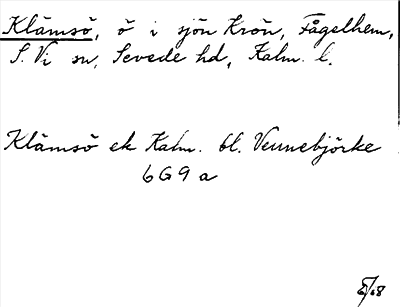 Klämsö, ö i sjön Krön, Fågelhem,
S. Vi sn, Sevede hd, Kalm. l.
Klämsö ek Kalm. bl. Vennebjörke
6G9a